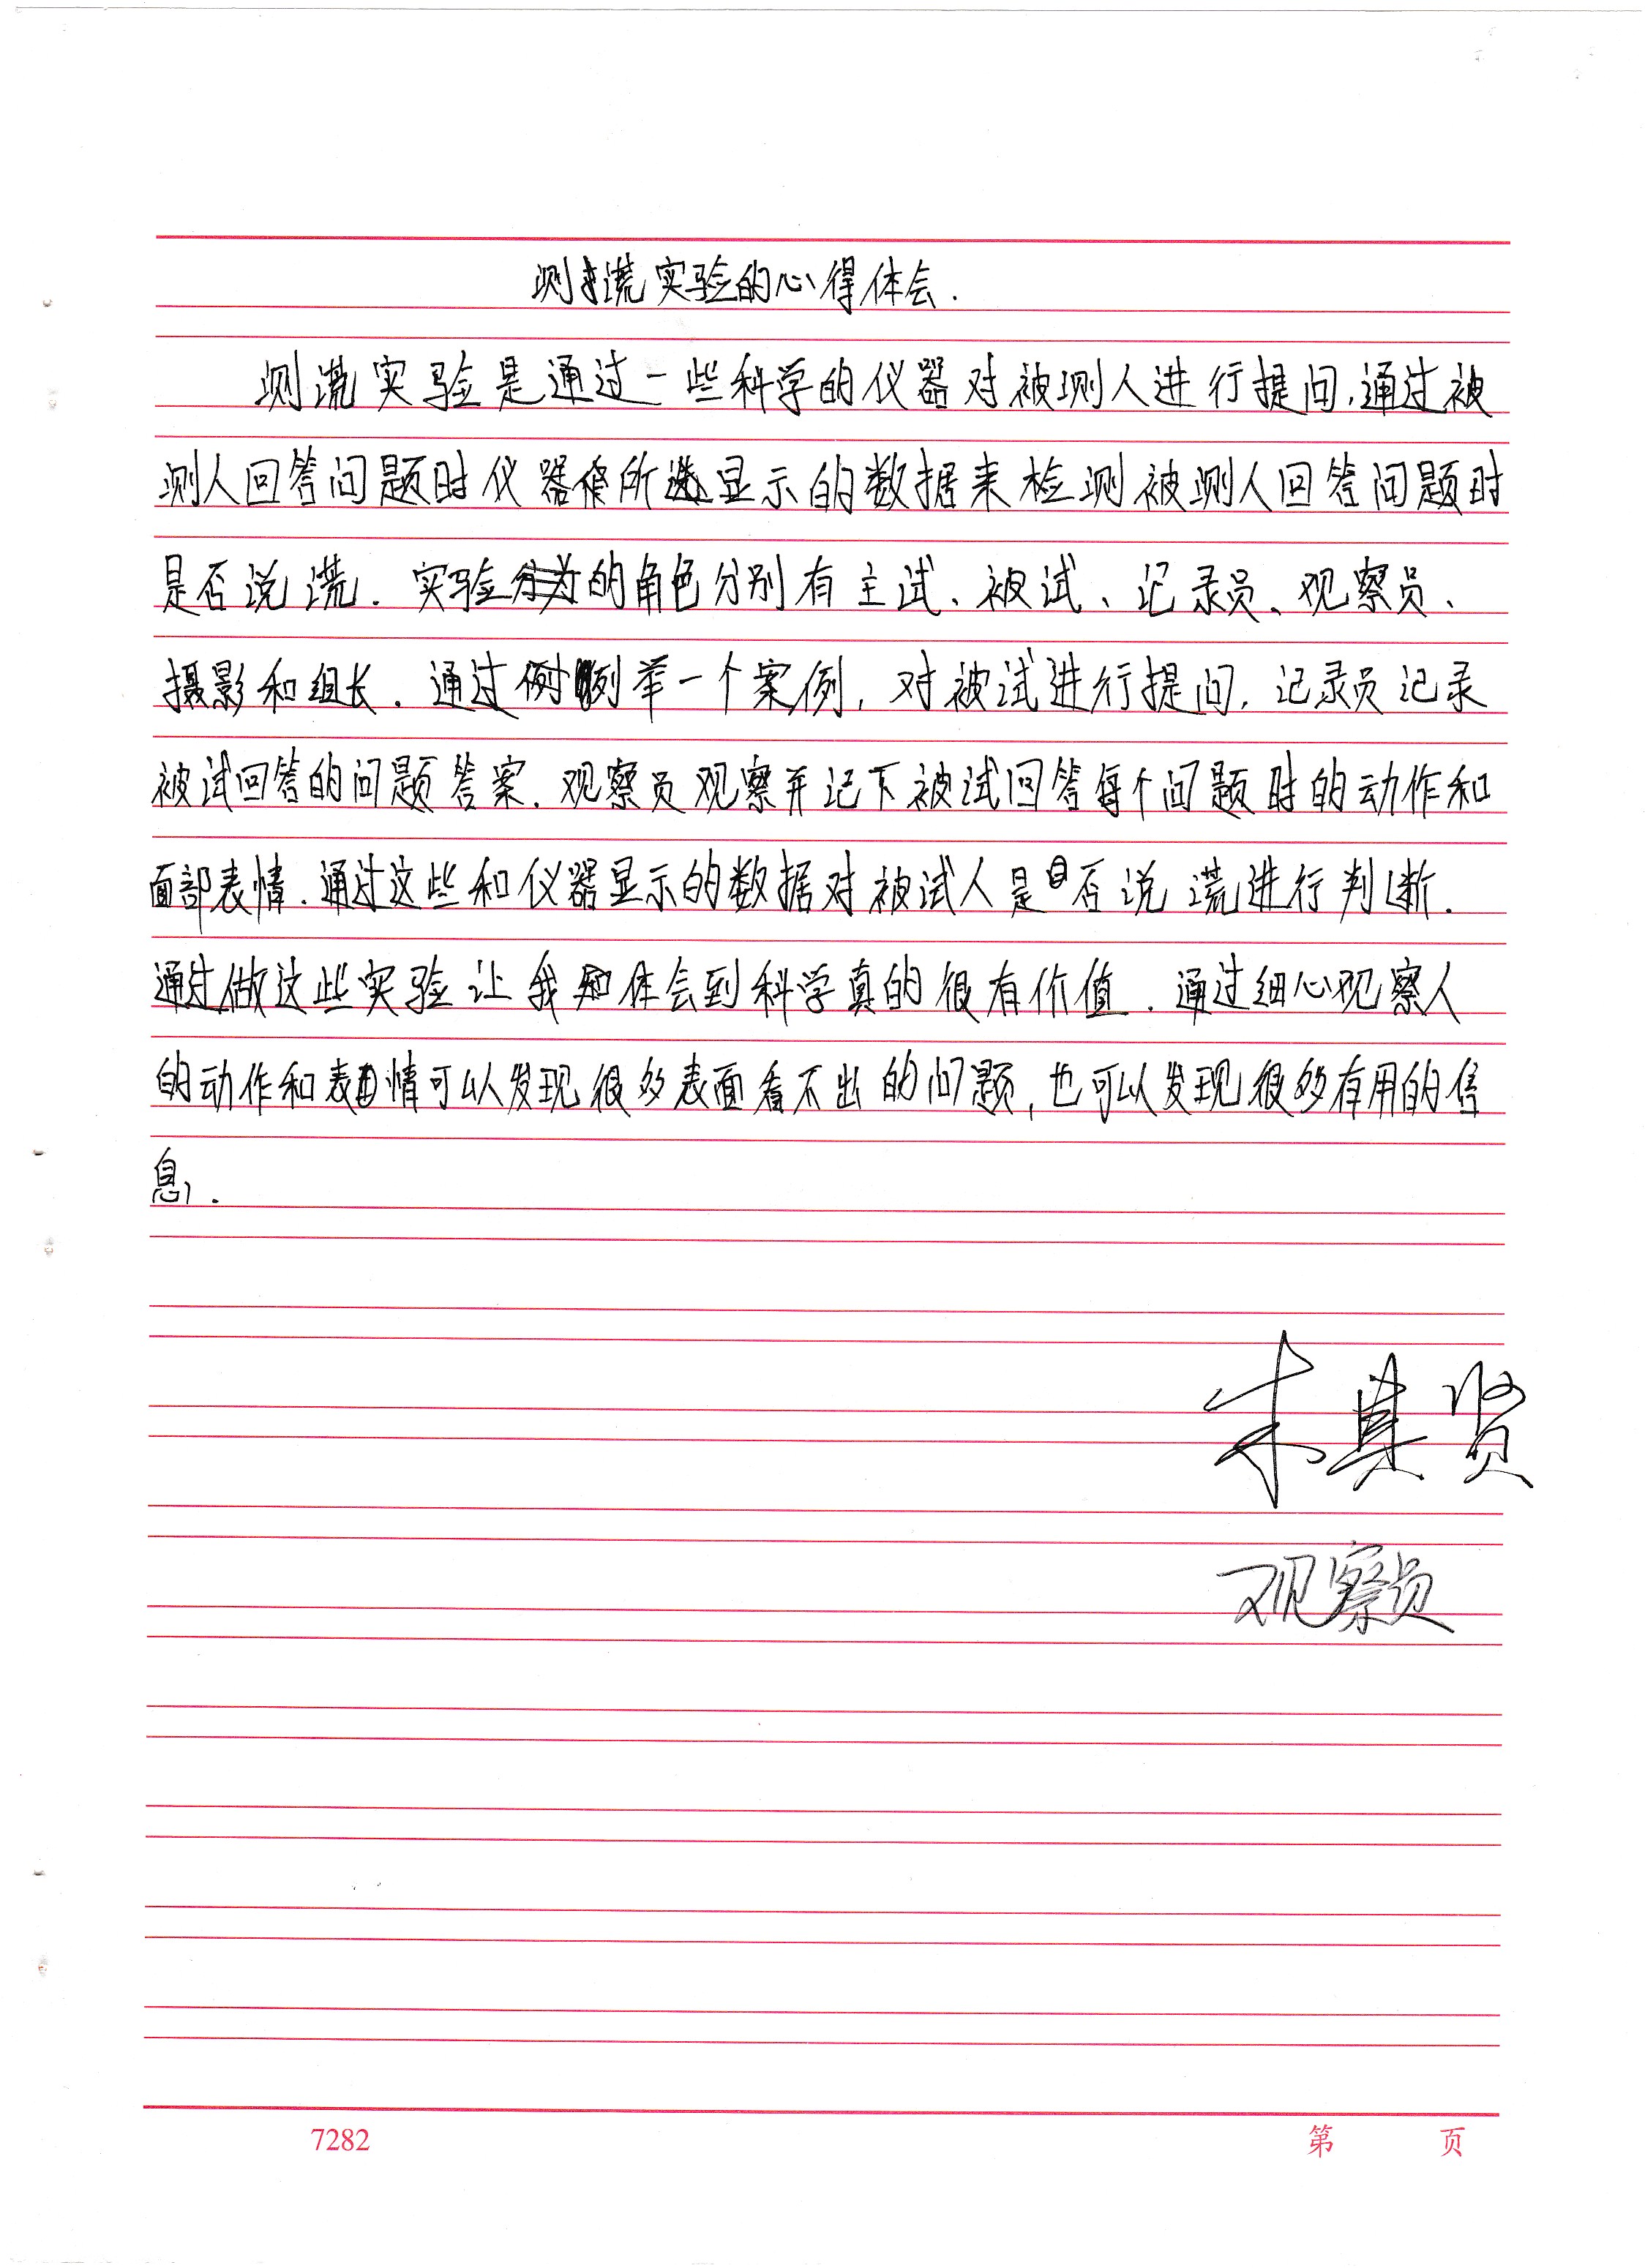 测谎实验的心得体会.
测谎实验是通过一些科学的仪器对被测人进行提问,通过被
测人回答问题时仪器所显示的数据来检测被测人回答问题时
是否说谎.实验的角色分别有主试、被试、记录员、观察员、
摄影和组长.通过例举一个案例,对被试进行提问,记录员记录
被试回答的问题答案.观察员观察并记下被试回答每个问题时的动作和
面部表情.通过这些和仪器显示的数据对被试人是否说谎进行判断.
通过做这些实验让我体会到科学真的很有价值.通过细心观察人
的动作和表情可以发现很多表面看不出的问题,也可以发现很多有用的信
息.
贤
观察员
7282 第 页